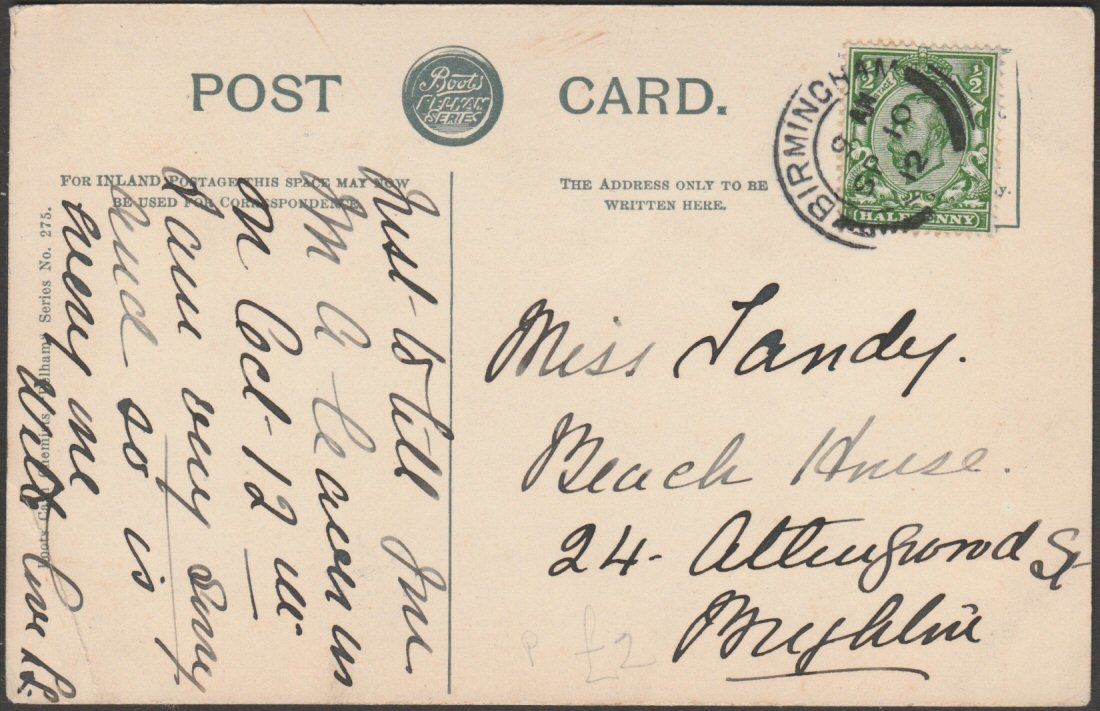 POST CARD.
Boots
PELHAM
SERIES
FOR INLAND POSTAGE THIS SPACE MAY NOW
BE USED FOR CORRESPONDENCE.
THE ADDRESS ONLY TO BE
WRITTEN HERE.
BIRMINGHAM
9 AM
SP 10
12
½ ½
HALFPENNY
Boots Cash Chemists "Pelham" Series No. 275.
Just to tell
Mr A leaves us
on Oct 12
I am very sorry
and so is
every one
with love
Miss Tandy.
Beach House.
24
St
£2